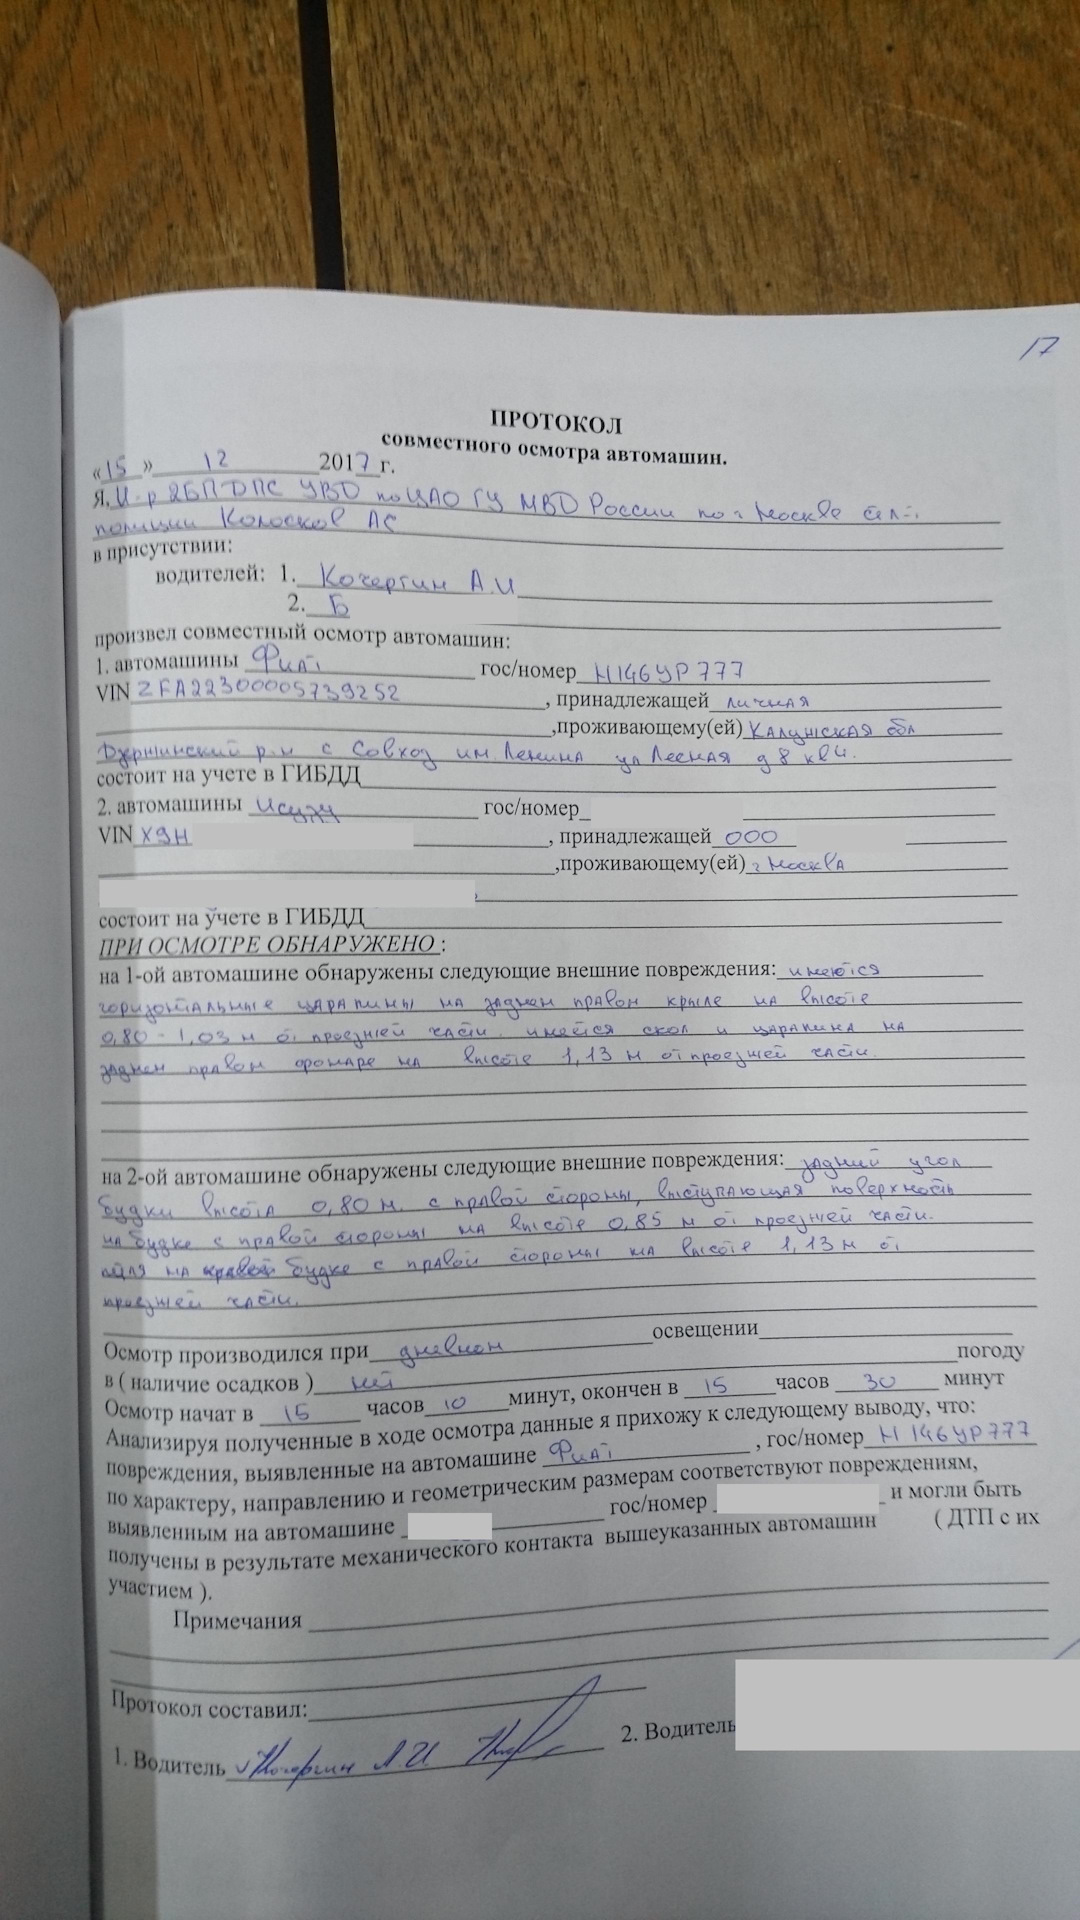 17
ПРОТОКОЛ
совместного осмотра автомашин.
«15» 12 2017 г.
Я, И-р 2БПДПС УВД по ЦАО ГУ МВД России по г Москве ст л-т
полиции Колосков АС
в присутствии:
водителей: 1. Кочергин А.И
2. Б
произвел совместный осмотр автомашин:
1. автомашины Фиат гос/номер Н146УР777
VIN ZFA22300005739252 , принадлежащей личная
,проживающему(ей) Калужская обл
Дзержинский р-н с Совхоз им. Ленина ул Лесная д 8 кв 4.
состоит на учете в ГИБДД
2. автомашины Исузу гос/номер
VIN X9H , принадлежащей ООО
,проживающему(ей) г Москва
состоит на учете в ГИБДД
ПРИ ОСМОТРЕ ОБНАРУЖЕНО :
на 1-ой автомашине обнаружены следующие внешние повреждения: имеются
горизонтальные царапины на заднем правом крыле на высоте
0,80 - 1,03 м от проезжей части. имеется скол и царапина на
заднем правом фонаре на высоте 1,13 м от проезжей части.
на 2-ой автомашине обнаружены следующие внешние повреждения: задний угол
будки высота 0,80 м. с правой стороны, выступающая поверхность
на будке с правой стороны на высоте 0,85 м от проезжей части.
на будке с правой стороны на высоте 1,13 м от
проезжей части.
Осмотр производился при дневном освещении
в ( наличие осадков ) нет погоду
Осмотр начат в 15 часов 10 минут, окончен в 15 часов 30 минут
Анализируя полученные в ходе осмотра данные я прихожу к следующему выводу, что:
повреждения, выявленные на автомашине Фиат , гос/номер Н 146УР777
по характеру, направлению и геометрическим размерам соответствуют повреждениям,
выявленным на автомашине гос/номер и могли быть
получены в результате механического контакта вышеуказанных автомашин ( ДТП с их
участием ).
Примечания
Протокол составил:
1. Водитель Кочергин А.И 2. Водитель